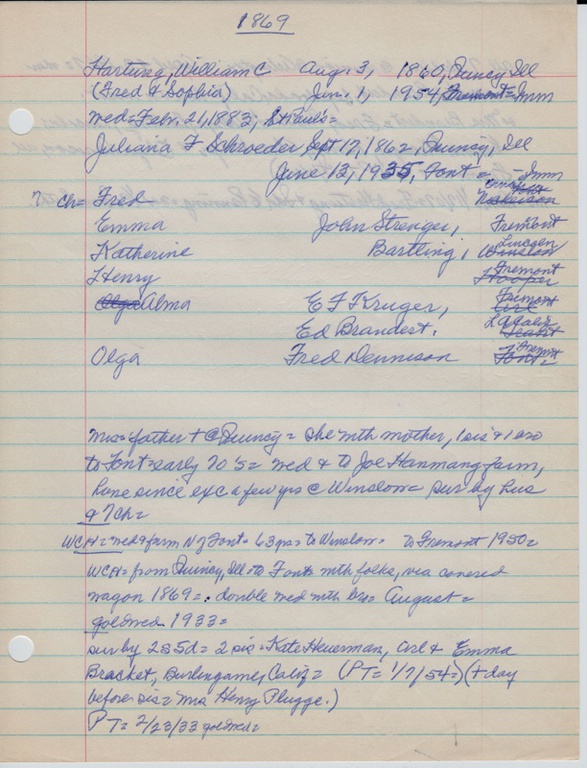 1869
Hartung, William C Aug. 3, 1860, Quincy Ill
(Fred & Sophia) Jan. 1, 1954, Fremont = Imm
wed = Febr. 21, 1883, St Paul's =
Juliana F Schroeder Sept 17, 1862, Quincy, Ill
June 13, 1935, Font = Imm
7 ch = Fred Nickerson
Emma John Strenger, Fremont
Katherine Bartling, Winslow Lincoln
Henry Hooper Fremont
Olga Alma E F Kruger, Arl Fremont
Ed Brandert.
Olga Fred Dennison Font = Fremont
Mrs = father + @ Quincy = she mth mother, 1 sis & 1 bro
to Font = early 70's = wed & to Joe Hanmang farm,
home since exc a few yrs @ Winslow = sur by hus
& 7 ch =
WCH = wed & farm N of Font = 63 yrs = to Winslow = to Fremont 1950 =
WCH = from Quincy, Ill = to Font = mth folks, via covered
wagon 1869 = . double wed mth bro = August =
gol wed 1933 =
sur by 2s 5d = 2 sis = Kate Heuerman, Arl & Emma
Bracket, Burlingame, Calif = (PT = 1/7/54 =) (+ day
before sis = Mrs Henry Plugge.)
PT = 2/23/33 gol wed =